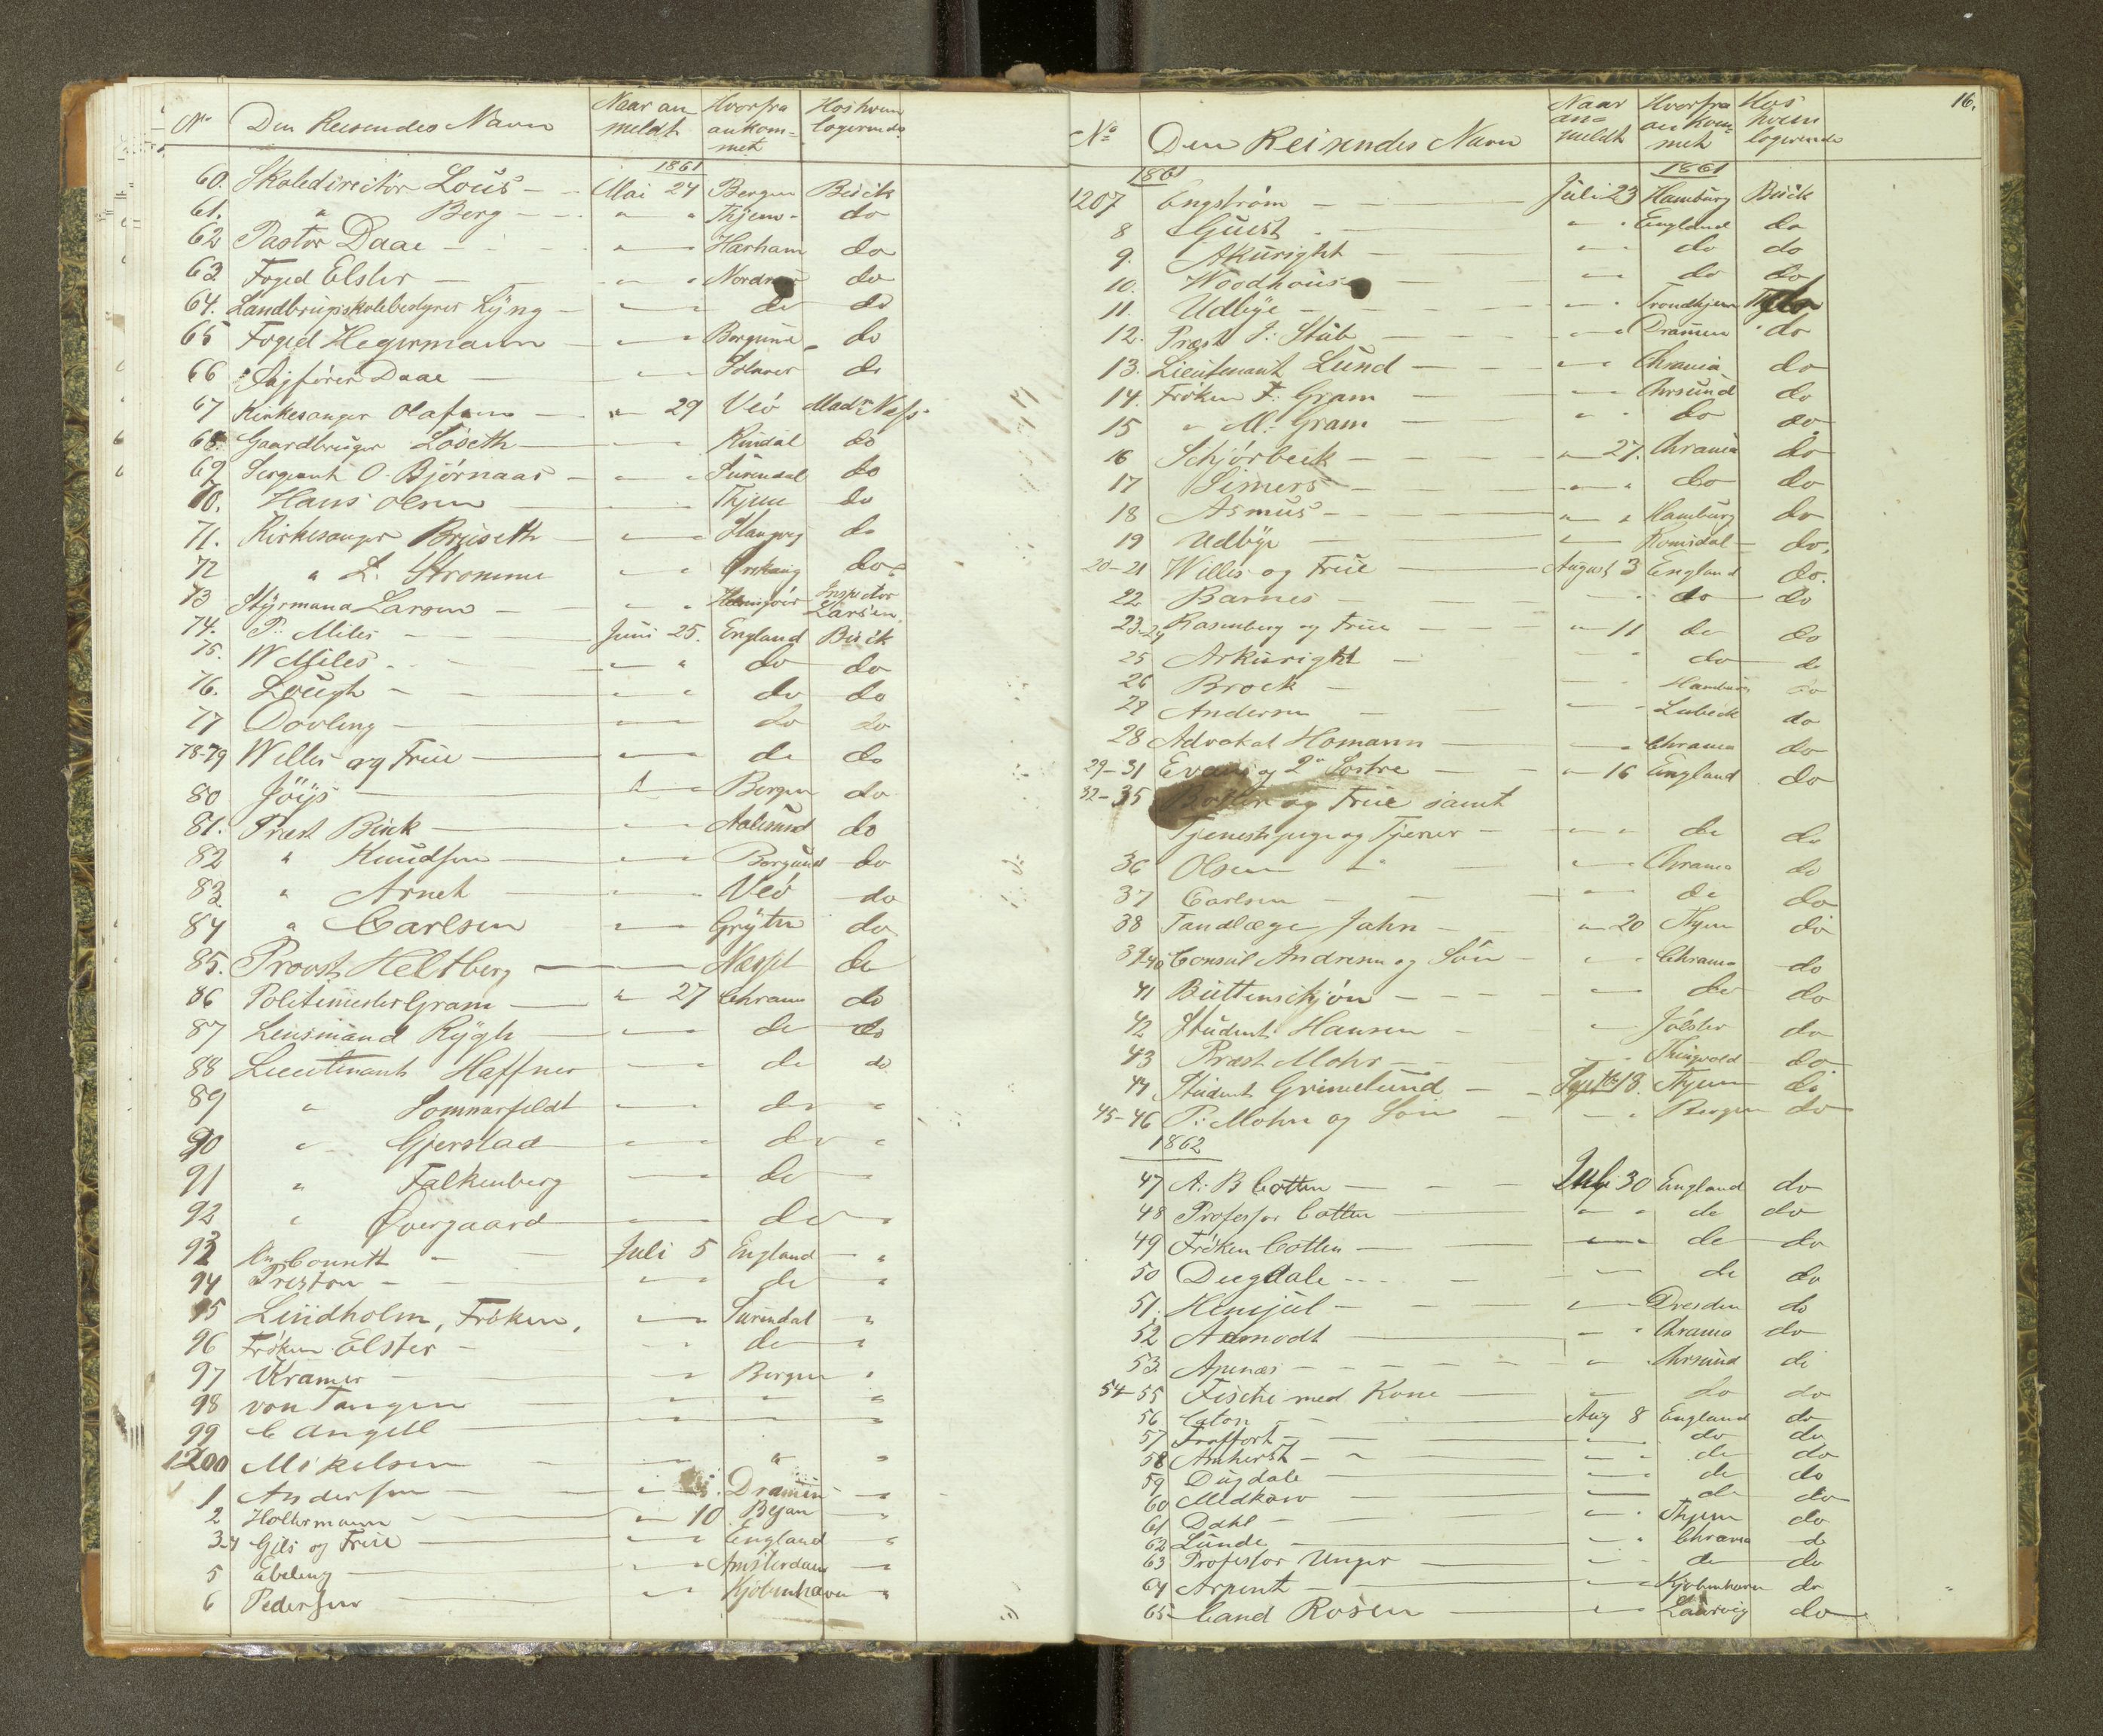 No Den Reisendes Navn Naar an meldt Hvorfra ankom= met Hos hvem logerende
1861
60. Skoledirectör Loüs - - Mai 24 Bergen Buick
61. " Berg - - " " Thjem - do
62 Pastor Daae - - " Harham do
63 Foged Elster - " Nordm do
64. Landbrugsskolebestyrer Lyng - - do do
65 Foged Hegermann - - Borgund - do
66 Sagförer Daae - - Solnør do
67 Kirkesanger Olafsen - " 29 Veö Mad: Næss
68. Gaardbruger Löseth - - Rindal do
69 Sergeant O. Björnaas - " Surendal do
70. Hans Olsen Thjem do
71. Kirkesanger Brüseth - Stangvig do
72 " L. Stromme " " Ørskoug do
73 Styrmand Larsen - " " Helsingör Inspector Larsen
74. P: Miles - Juni 25. England Buick
75. W Miles - " " do do
76. Lough - " " do do
77 Dovling - - do do
78-79 Willis og Frue - - do do
80 Jöys - Bergen do
81. Præst Buck - - Aalesund do
82 " Knudsen - - Borgund do
83. " Arnet - Veö do
84 " Carlsen - Grytten do
85. Provst Heltberg - Nesset do
86 Politimester Gram - " 27 Chrania do
87 Lensmand Rygh - do do
88 Lieutenant Haffner - do do
89 " Sommerfeldt - do "
90 " Gjerstad - do "
91 " Falkenberg - do -
92 " Overgaard - do "
93 Mc Connell - Juli 5 England - "
94 Preston - - do "
95 Lindholm, Fröken, - Surendal "
96 Fröken Elster - - do "
97 Kramer - " Bergen "
98 von Tangen - " " "
99 C Angell - - "
1200 Mikelsen - " "
1 Andersen - - Dramen "
2 Holtermann - " 10 Bejan "
3-4 Gils og Frue - " England "
5 Ebeling - " Amsterdam "
6 Pedersen - " Kjöbenhavn "
16.
No Den Reisendes Navn Naar an= meldt Hvorfra ankom= met Hos hvem logerende
1861 1861
1207 Engström - - Juli 23 Hamburg Buick
8 Guest - " England do
9. Akuright - - do do
10. Woodhouse - do do
11. Udbye - - " Trondhjem do
12. Præst J: Stub - " Dramen do
13. Lieutenant Lund - - " Chrania do
14. Fröken F: Gram - - Chrsund do
15 " M: Gram - " do do
16 Schjörbeck - - " 27. Chrania do
17 Simers - - " do do
18 Asmus - - " " Hamburg do
19 Udbye - - Romsdal do.
20-21 Willis og Frue - August 3 England do.
22 Barnes - - do do
23-24 Rosenberg og Frue - " 11 do do
25 Arkuright - - do do
26 Brock - - Hamburg do
27 Andersen - - Lubeck do
28 Advokat Homann - " Chrania do
29-31 Evans og 2de Söstre - " 16 England do
32-35 og Frue samt
Tjenestepige og Tjener - - " do do
36 Olsen - - Chrania do
37 Carlsen - - do do
38 Tandlæge Jahn - " 20 Thjem do
39-40 Consul Andresen og Sön - " " Chrania do
41 Buttenschjön - - do do
42 Student Hansen - " Jölster do
43 Præst Mohr - " Thingvold do.
44 Student Grimelund - - Septbr 18. Thjem do
45-46 P: Mohn og Sön - " Bergen do
1862
47 A: B Cotten - - Juli 30 England do
48 Professor Cotten - " " do do
49 Fröken Cotten - - do do
50 Dugdale - - - do do
51. Hemjul - - Dresden do
52 Aamodt - - " Chrania do
53. Apenæs - - - " Chrsund do
54-55 Fische med Kone - do do
56. Caton - - Aug 8 England do
57 Traffort - - do do
58 Amherst - - " do do
59 Dugdale - - do do
60 Medkaw - - do do
61 Dahl - - " Thjem do
62 Lunde - " Chrania do
63 Professor Unger - - do do
64 Arpent - - Kjöbenhavn do
65 Cand Rosen - - Laurvig do